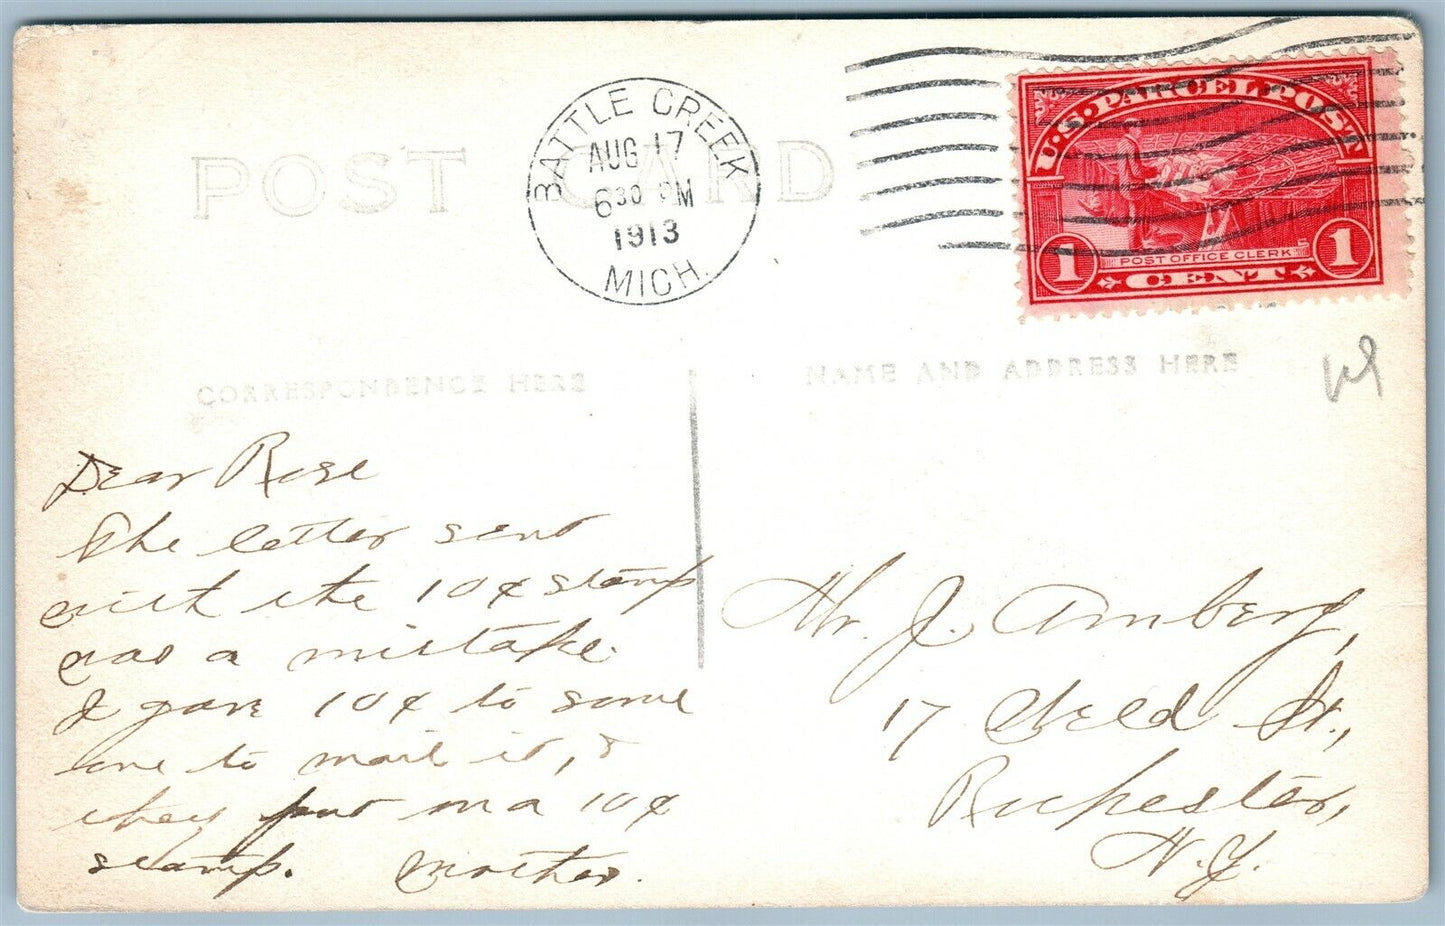 POST CARD
BATTLE CREEK
AUG 17
6 30 PM
1913
MICH.
U.S. PARCEL POST
POST OFFICE CLERK
1 CENT 1
CORRESPONDENCE HERE
NAME AND ADDRESS HERE
Dear Rose
The letter sent
with the 10¢ stamp
was a mistake.
I gave 10¢ to some
one to mail it, &
they put on a 10¢
stamp. Mother.
Mr. J. Amberg,
17 Weld St.,
Rochester,
N.Y.